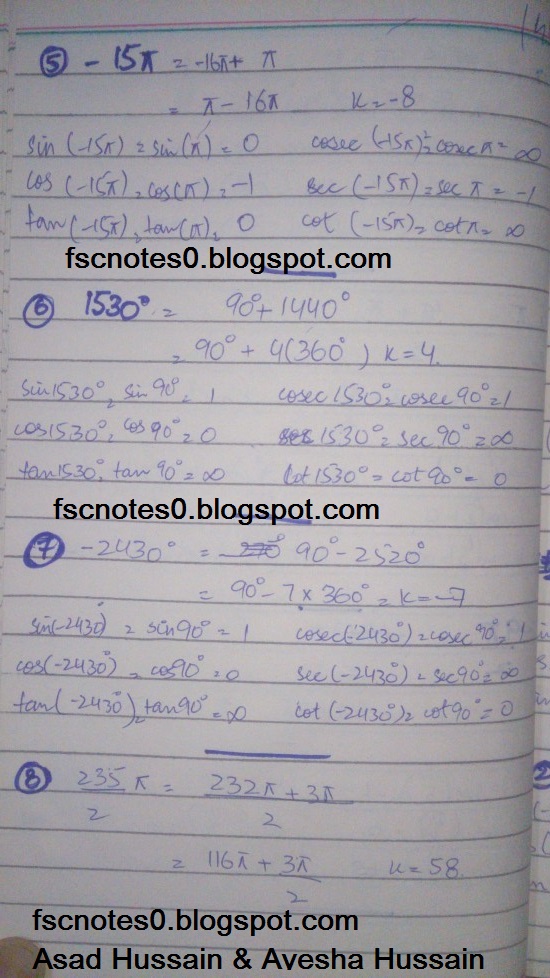 ⑤ - 15π = -16π + π
= π - 16π K = -8
sin (-15π) = sin(π) = 0 cosec (-15π) = cosec π = ∞
cos (-15π) = cos(π) = -1 sec (-15π) = sec π = -1
tan (-15π) = tan(π) = 0 cot (-15π) = cot π = ∞
fscnotes0.blogspot.com
⑥ 1530° = 90° + 1440°
= 90° + 4(360°) K = 4.
sin 1530° = sin 90° = 1 cosec 1530° = cosec 90° = 1
cos 1530° = cos 90° = 0 1530° = sec 90° = ∞
tan 1530° = tan 90° = ∞ Cot 1530° = cot 90° = 0
fscnotes0.blogspot.com
⑦ - 2430° = 90° - 2520°
= 90° - 7 × 360° = K = -7
sin(-2430°) = sin 90° = 1 cosec(-2430°) = cosec 90° = 1
cos(-2430°) = cos 90° = 0 sec(-2430°) = sec 90° = ∞
tan(-2430°) = tan 90° = ∞ cot(-2430°) = cot 90° = 0
⑧ 235/2 π = (232π + 3π)/2
= 116π + 3π/2 K = 58.
fscnotes0.blogspot.com
Asad Hussain & Ayesha Hussain